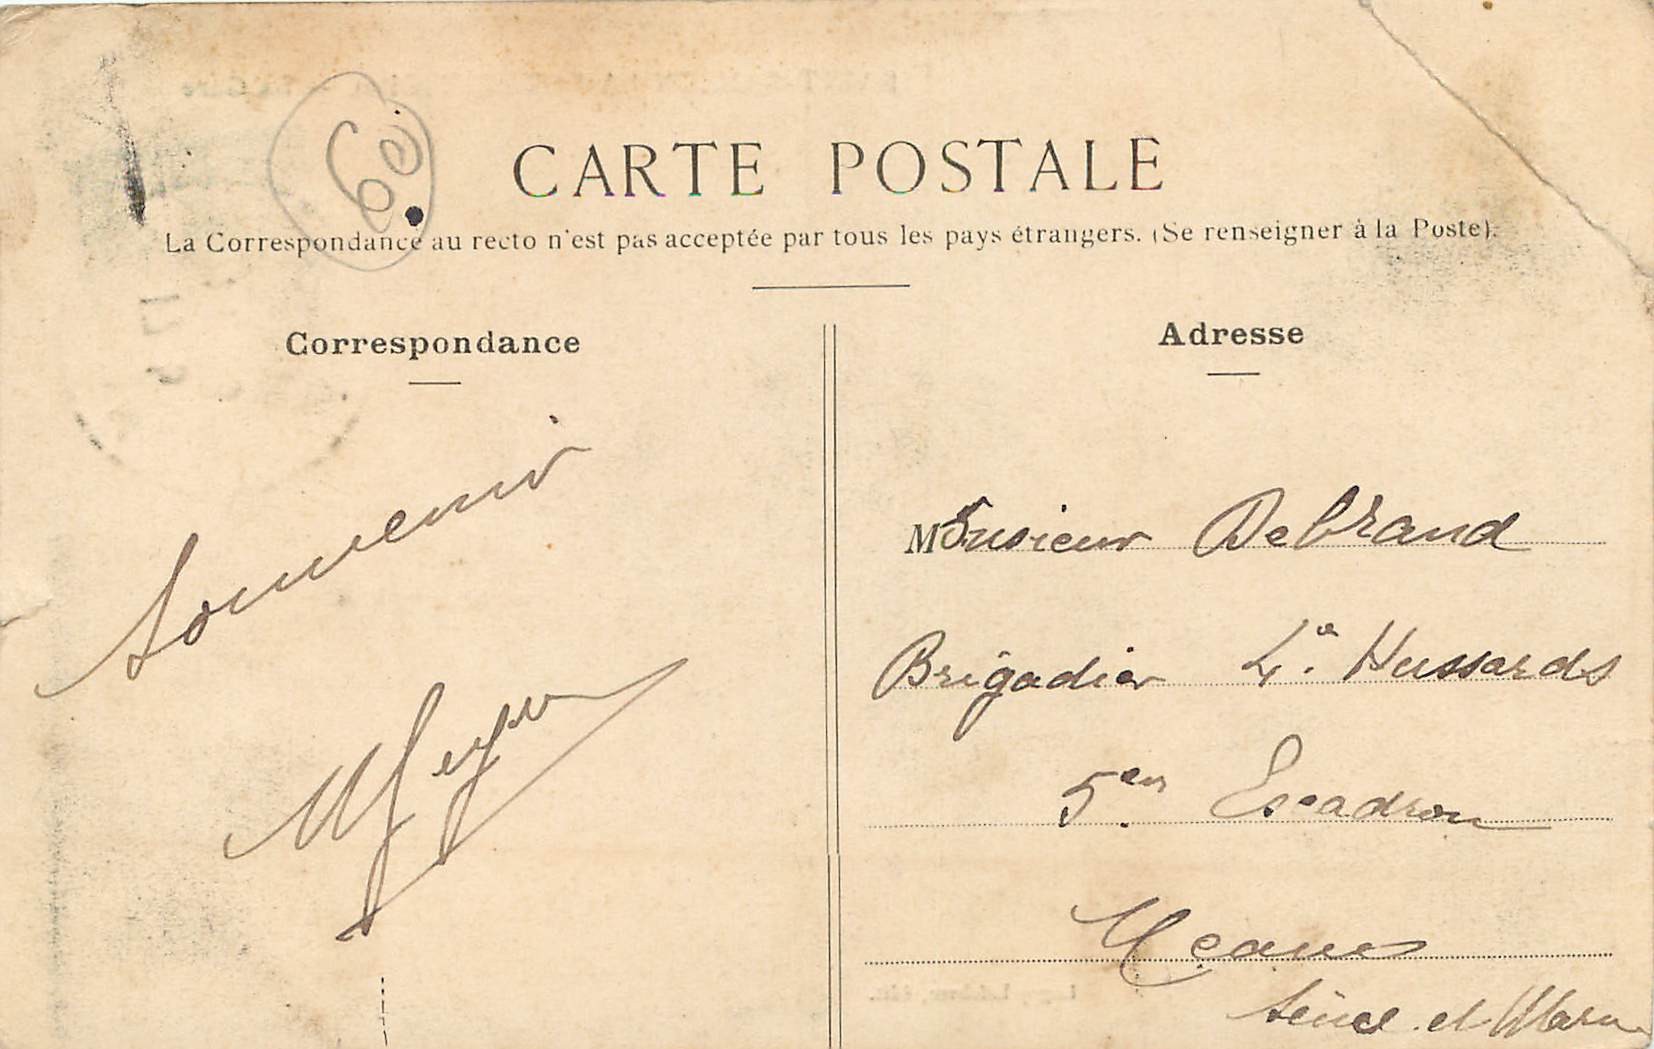 60
CARTE POSTALE
La Correspondance au recto n'est pas acceptée par tous les pays étrangers. (Se renseigner à la Poste).
Correspondance
Souvenir
Adresse
Monsieur Debrand
Brigadier 4e Hussards
5en Escadron
Meaux
Seine et Marne